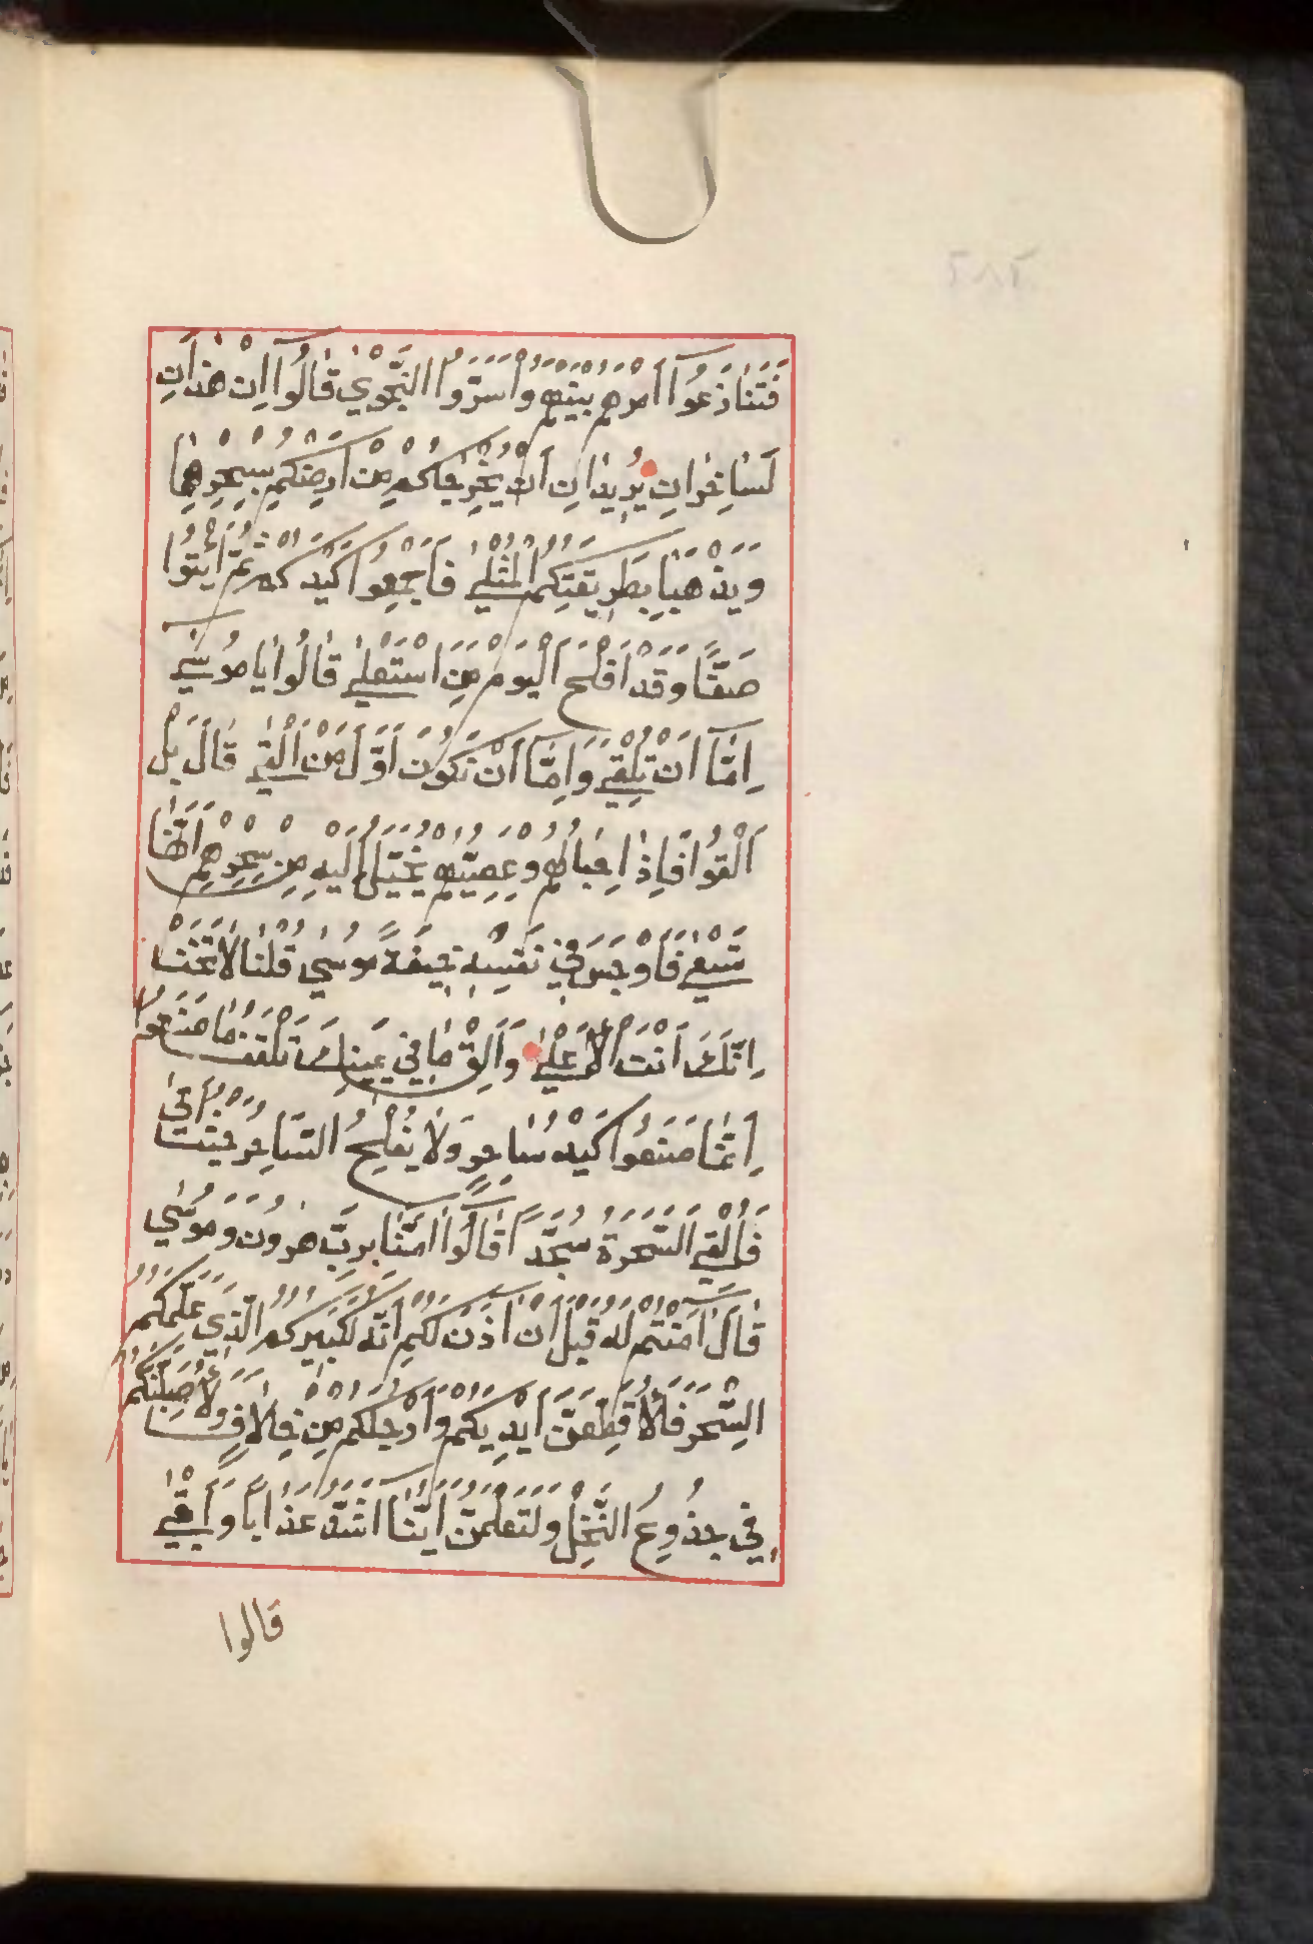 فَتَنَازَعُوا اَمْرَهُمْ بَيْنَهُمْ وَاَسَرُّوا النَّجْوٰي قَالُوا اِنْ هٰذَانِ
لَسَاحِرَانِ يُرِيدَانِ اَنْ يُخْرِجَاكُمْ مِنْ اَرْضِكُمْ بِسِحْرِهِمَا
وَيَذْهَبَا بِطَرِيقَتِكُمُ الْمُثْلٰي فَاَجْمِعُوا كَيْدَكُمْ ثُمَّ ائْتُوا
صَفًّا وَقَدْ اَفْلَحَ الْيَوْمَ مَنِ اسْتَعْلٰي قَالُوا يَا مُوسٰي
اِمَّا اَنْ تُلْقِيَ وَاِمَّا اَنْ نَكُونَ اَوَّلَ مَنْ اَلْقٰي قَالَ بَلْ
اَلْقُوا فَاِذَا حِبَالُهُمْ وَعِصِيُّهُمْ يُخَيَّلُ اِلَيْهِ مِنْ سِحْرِهِمْ اَنَّهَا
تَسْعٰي فَاَوْجَسَ فِي نَفْسِهِ خِيفَةً مُوسٰي قُلْنَا لَا تَخَفْ
اِنَّكَ اَنْتَ الْاَعْلٰي وَاَلْقِ مَا فِي يَمِينِكَ تَلْقَفْ مَا صَنَعُوا
اِنَّمَا صَنَعُوا كَيْدُ سَاحِرٍ وَلَا يُفْلِحُ السَّاحِرُ حَيْثُ اَتٰي
فَاُلْقِيَ السَّحَرَةُ سُجَّدًا قَالُوا اٰمَنَّا بِرَبِّ هٰرُونَ وَمُوسٰي
قَالَ اٰمَنْتُمْ لَهُ قَبْلَ اَنْ اٰذَنَ لَكُمْ اِنَّهُ لَكَبِيرُكُمُ الَّذِي عَلَّمَكُمُ
السِّحْرَ فَلَاُقَطِّعَنَّ اَيْدِيَكُمْ وَاَرْجُلَكُمْ مِنْ خِلَافٍ وَلَاُصَلِّبَنَّكُمْ
فِي جُذُوعِ النَّخْلِ وَلَتَعْلَمُنَّ اَيُّنَا اَشَدُّ عَذَابًا وَاَبْقٰي
قالوا